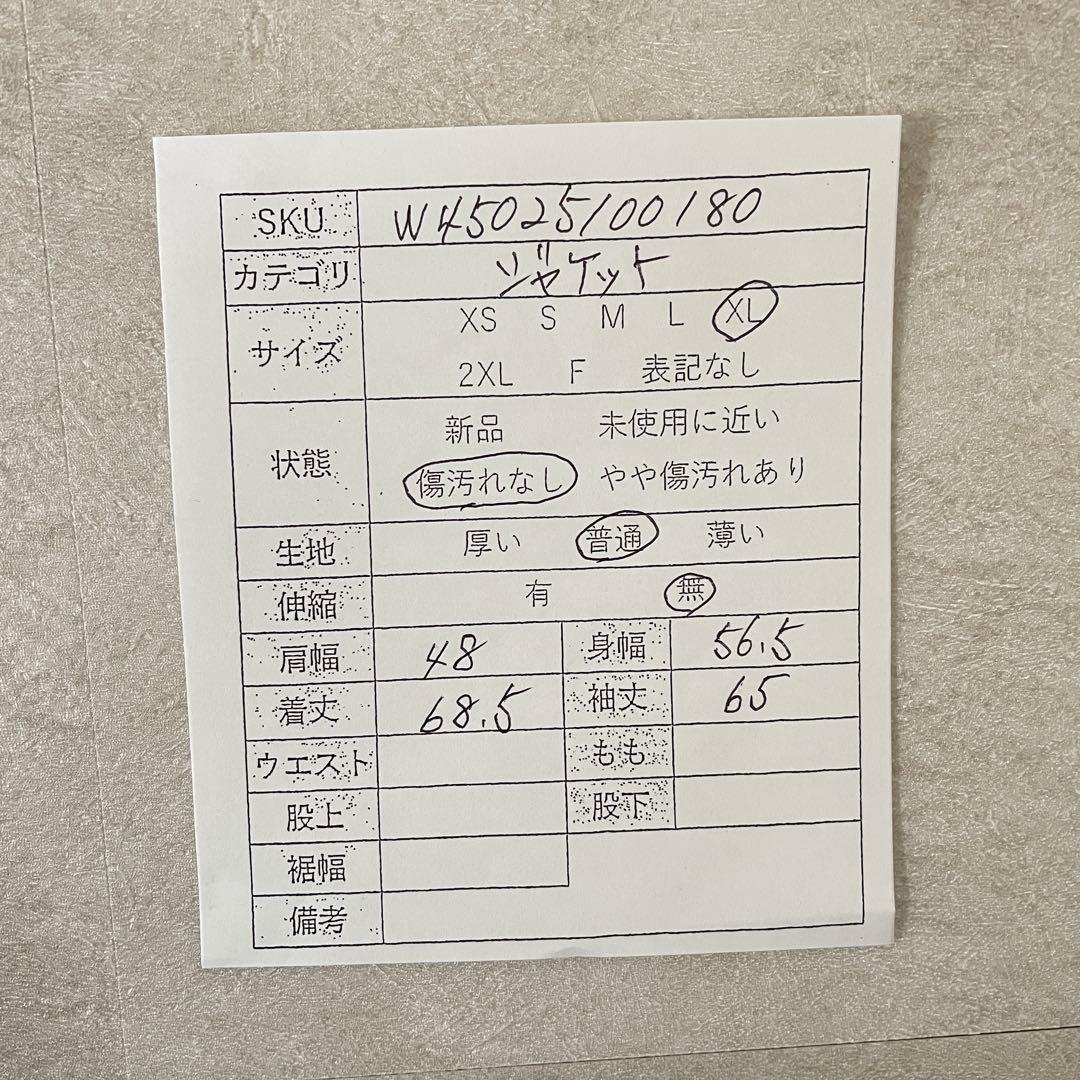 SKU W45025100180
カテゴリ ジャケット
サイズ XS S M L XL
2XL F 表記なし
状態 新品 未使用に近い
傷汚れなし やや傷汚れあり
生地 厚い 普通 薄い
伸縮 有 無
肩幅 48 身幅 56.5
着丈 68.5 袖丈 65
ウエスト もも
股上 股下
裾幅
備考